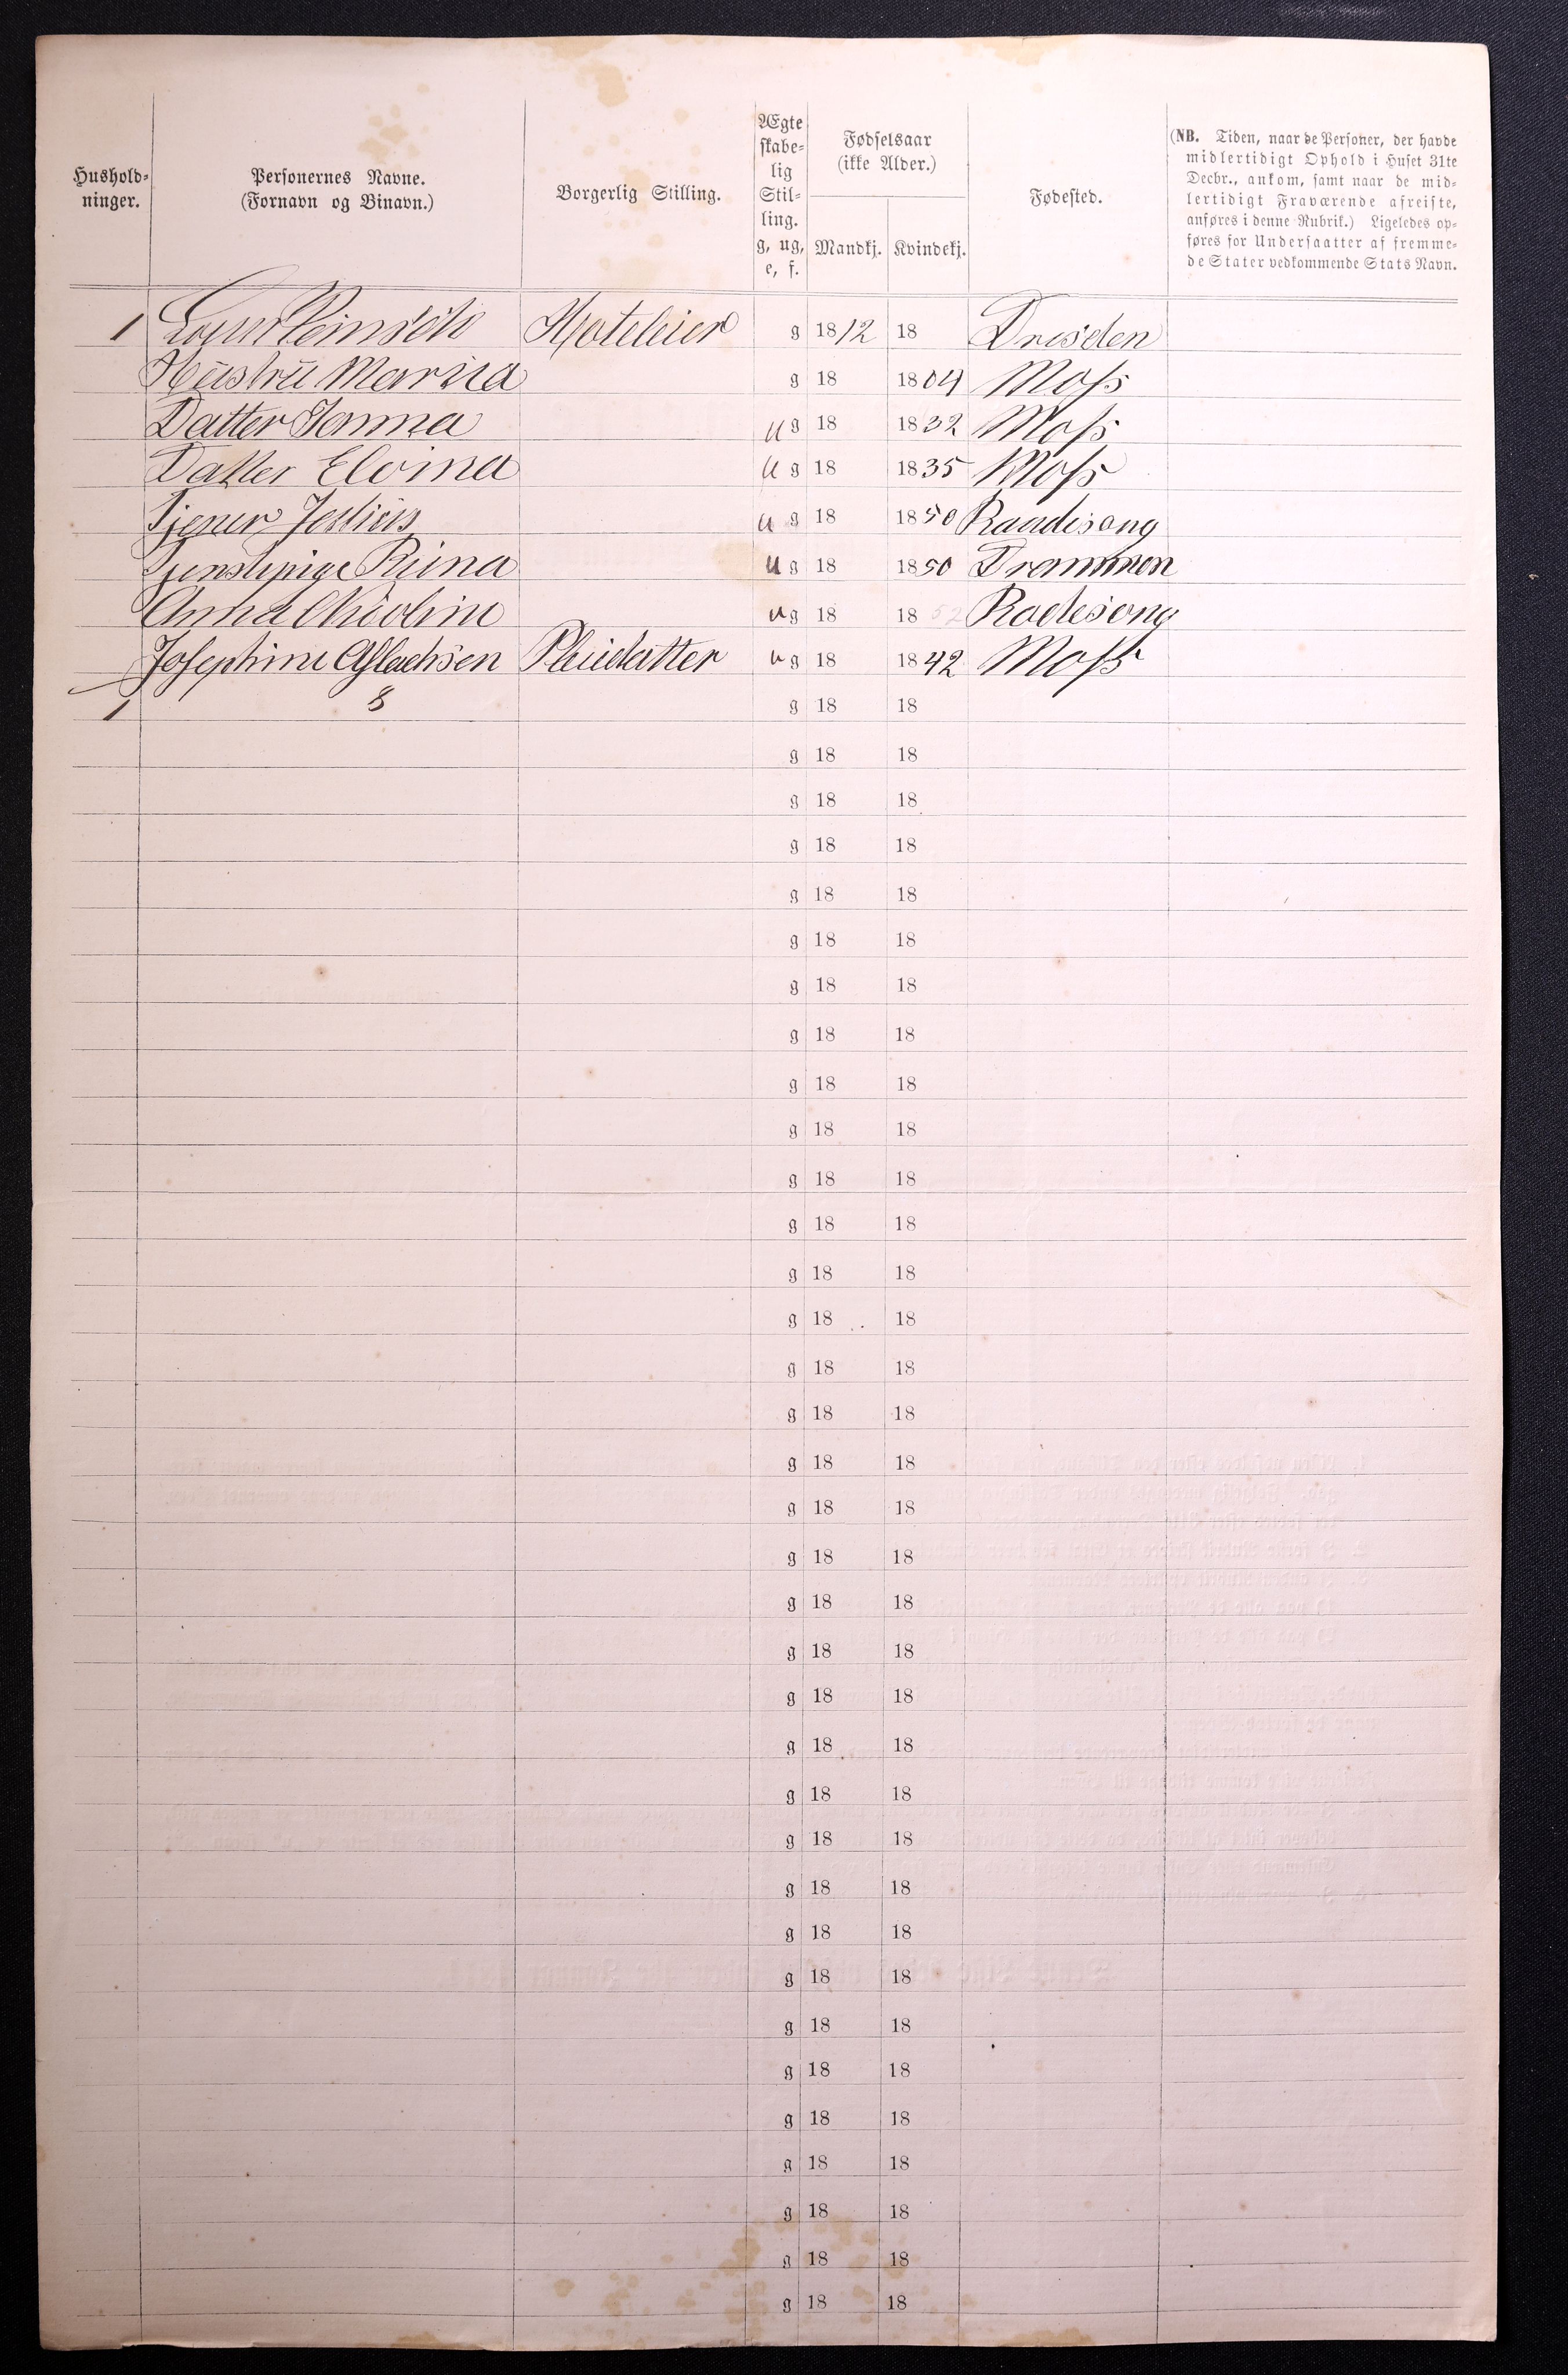 Hushold-
ninger.
Personernes Navne.
(Fornavn og Binavn.)
Borgerlig Stilling.
Ægte
skabe-
lig
Stil-
ling.
g, ug,
e, f.
Fødselsaar
(ikke Alder.)
Mandkj. Kvindekj.
Fødested.
(NB. Tiden, naar de Personer, der havde
midlertidigt Ophold i Huset 31te
Decbr., ankom, samt naar de mid-
lertidigt Fraværende afreiste,
anføres i denne Rubrik.) Ligeledes op-
føres for Undersaatter af fremme-
de Stater vedkommende Stats Navn.
1 Hoteleier g 1812 18 Dresden
Hustru Marna g 18 1804 Moss
Datter Jonna ug 18 1832 Moss
Datter Elvina ug 18 1835 Moss
ug 18 1850
Rina ug 18 1850 Drammen
Anna Nicoline ug 18 1852
Josephine Aslachsen Pleiedatter ug 18 1842 Moss
1 8 g 18 18
g 18 18
g 18 18
g 18 18
g 18 18
g 18 18
g 18 18
g 18 18
g 18 18
g 18 18
g 18 18
g 18 18
g 18 18
g 18 18
g 18 18
g 18 18
g 18 18
g 18 18
g 18 18
g 18 18
g 18 18
g 18 18
g 18 18
g 18 18
g 18 18
g 18 18
g 18 18
g 18 18
g 18 18
g 18 18
g 18 18
g 18 18
g 18 18
g 18 18
g 18 18